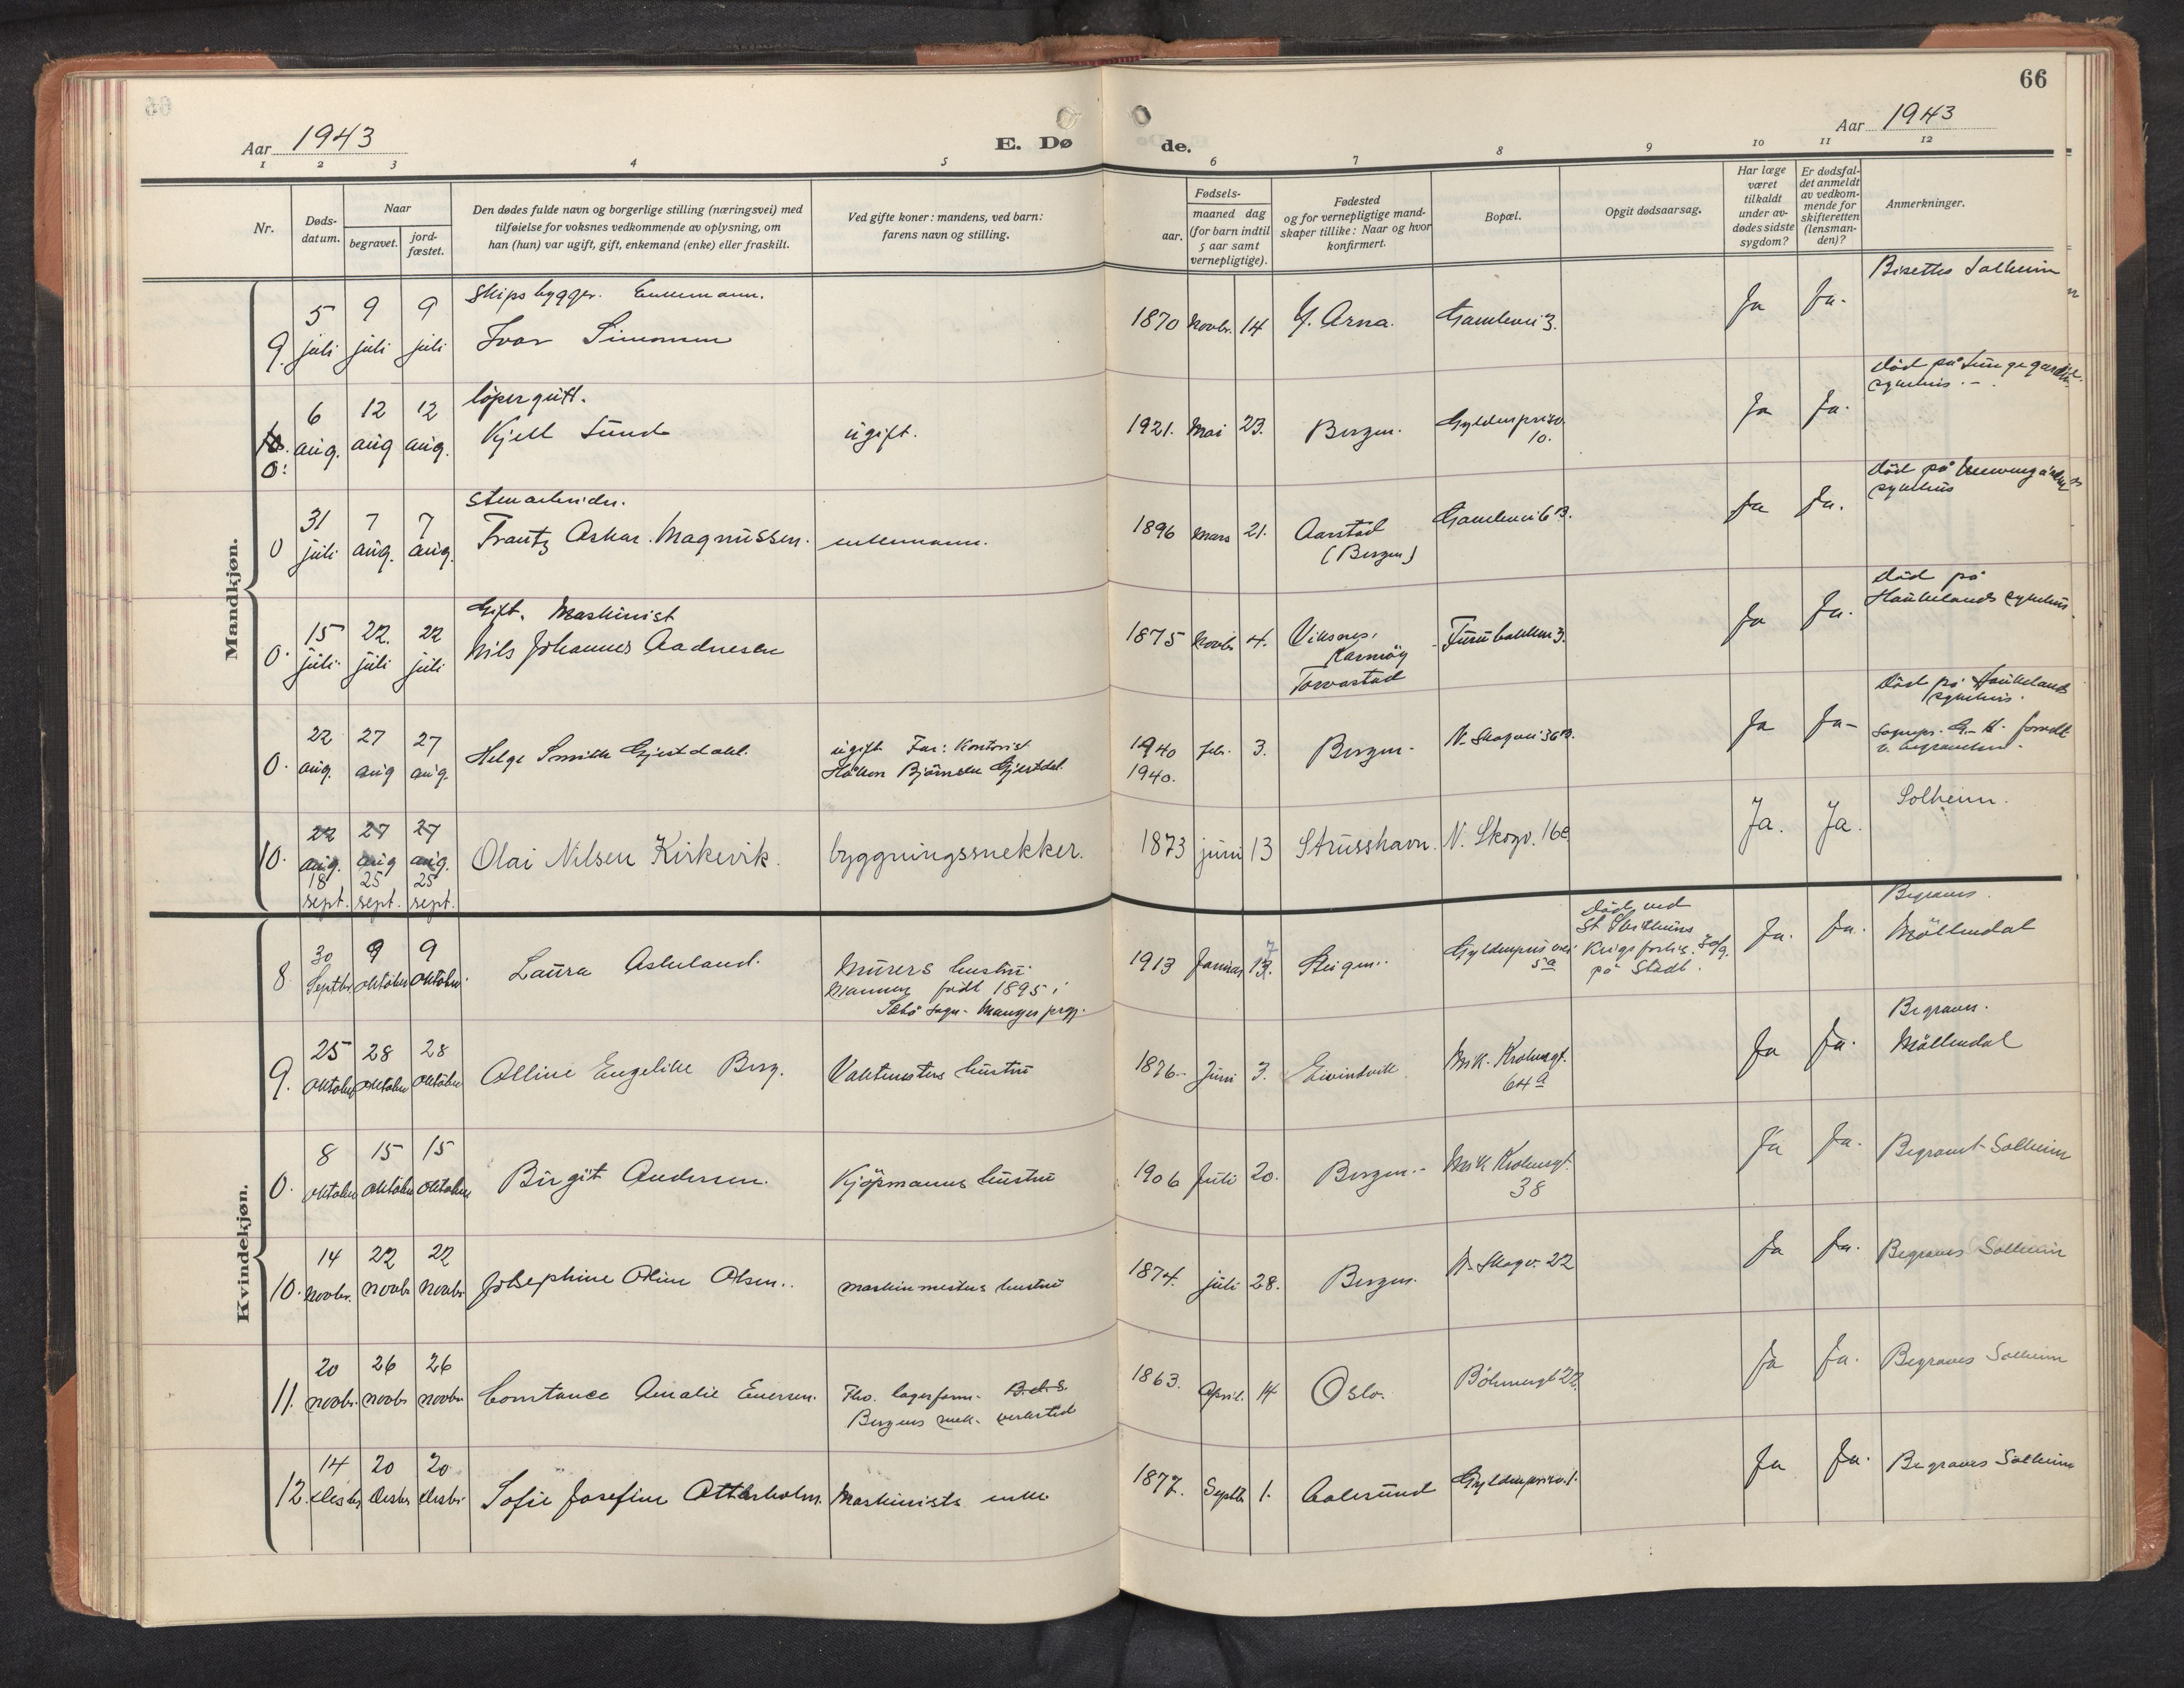 66
Aar 1943
E. Dø
de.
Aar 1943
1 2 3 4 5 6 7 8 9 10 11 12
Nr.
Døds-
datum.
Naar
begravet.
jord-
fæstet.
Den dødes fulde navn og borgerlige stilling (næringsvei) med
tilføielse for voksnes vedkommende av oplysning, om
han (hun) var ugift, gift, enkemand (enke) eller fraskilt.
Ved gifte koner: mandens, ved barn:
farens navn og stilling.
Fødsels-
aar.
maaned dag
(for barn indtil
5 aar samt
vernepligtige).
Fødested
og for vernepligtige mand-
skaper tillike: Naar og hvor
konfirmert.
Bopæl.
Opgit dødsaarsag.
Har læge
været
tilkaldt
under av-
dødes sidste
sygdom?
Er dødsfal-
det anmeldt
av vedkom-
mende for
skifteretten
(lensman-
den)?
Anmerkninger.
Mandkjøn.
9. 5 juli 9 juli 9 juli
Skipsbygger. Enkemann.
Ivar Simonsen
1870 Novbr. 14 Y. Arna. Gamlevei 3. Ja Ja.
Bisettes Solheim
0: 6 aug. 12 aug 12 aug.
løpergutt.
Kjell Sund
ugift.
1921. Mai 23. Bergen. Gyldenprisv.
10.
Ja Ja.
død på Lungegaarden
sykehus.
0 31 juli 7 aug. 7 aug.
Stenarbeider.
Frantz Oskar Magnussen.
enkemann.
1896 Mars 21. Aarstad
(Bergen)
Gamlevei 6 B. Ja Ja.
død på
sykehus
0. 15 juli. 22. juli 22 juli
Gift. Maskinist
Nils Johannes Aadnesen
1875 Novbr 4. Viksnes,
Karmøy
Torvastad
Furubakken 3. Ja Ja.
død på
Haukelands sykehus.
0. 22 aug. 27 aug 27 aug.
Helge Smith Gjestdahl.
ugift Far: Kontorist
Håkon Bjørnsen Gjestdal
1940 feb. 3. Bergen. N. Skogvei 36 B. Ja Ja
1940.
Død på Haukelands
sykehus.
Sognepr. G. K. forrett
v. begravelsen.
10. 22 aug. 27 aug 27 aug.
18 sept. 25 sept. 25 sept.
Olai Nilsen Kirkevik. byggningssnekker.
1873 juni 13 Strusshavn. N. Skogv. 16e Ja. Ja. Solheim.
Kvindekjøn.
8 30 Septbr. 9 oktober 9 oktober.
Laura Askeland.
Murers hustru
Mannen født 1895 i
Sæbø sogn. Manger prgj.
1913 Januar 13. 7 Steigen. Gyldenprisvei
5a
død ved
St Svithuns
Krigsforlis 30/9.
på Stadt.
Ja. Ja.
Begraves.
Møllendal
9. 25 oktober 28 oktober 28 oktober
Olline Engelike Berg. Vaktmesters hustru
1876. Juni 3. Eivindvik Mik. Krohnsgt.
64a
Ja Ja.
Begraves.
Møllendal
0. 8 oktober 15 oktober 15 oktober
Birgit Andersen. Kjøpmanns hustru
1906 Juli 20. Bergen. Mik Krohnsgt.
38
Ja Ja. Begravet Solheim
10. 14 Novbr. 22 novbr 22 Novbr.
Josephine Oline Olsen. maskinmesters hustru
1874. juli 28. Bergen. N. Skogv. 22 Ja Ja. Begraves Solheim
11. 20 novbr. 26 novbr 26 novbr.
Constance Amalie Evensen. Fhv. lagerform. B.d.S.
Bergens mek. verksted
1863. April. 14 Oslo. Bøhmergt 22. Ja Ja. Begraves Solheim
12. 14 Desbr 20 Desbr 20 Desbr.
Sofie Josefine Otterholm. Maskinists enke
1877. Septbr 1. Aalesund Gyldenprisv. 1. Ja Ja. Begraves Solheim